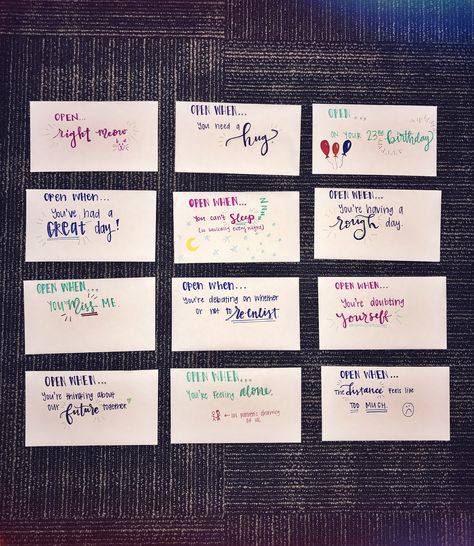 OPEN...
right meow
OPEN WHEN...
You need a
hug.
OPEN...
ON YOUR 23RD birthday
Open When...
You've had a
GREAT day!
OPEN WHEN...
You can't Sleep
(so basically every night)
OPEN WHEN...
You're having a
rough day.
OPEN WHEN...
YOU Miss ME.
Open When...
You're debating on whether
or not to re-enlist
OPEN WHEN...
You're doubting
yourself
OPEN WHEN...
You're thinking about
our future together.
OPEN WHEN...
You're feeling alone.
OPEN WHEN...
The distance feels like
TOO MUCH.